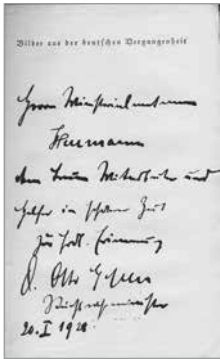 Bilder aus der deutschen Vergangenheit
Herrn Ministerialamtmann
Herrmann
dem treuen Mitarbeiter und
Helfer in schwerer Zeit
zur frdl. Erinnerung
D. Otto Gessler
Reichswehrminister
20. I 1928